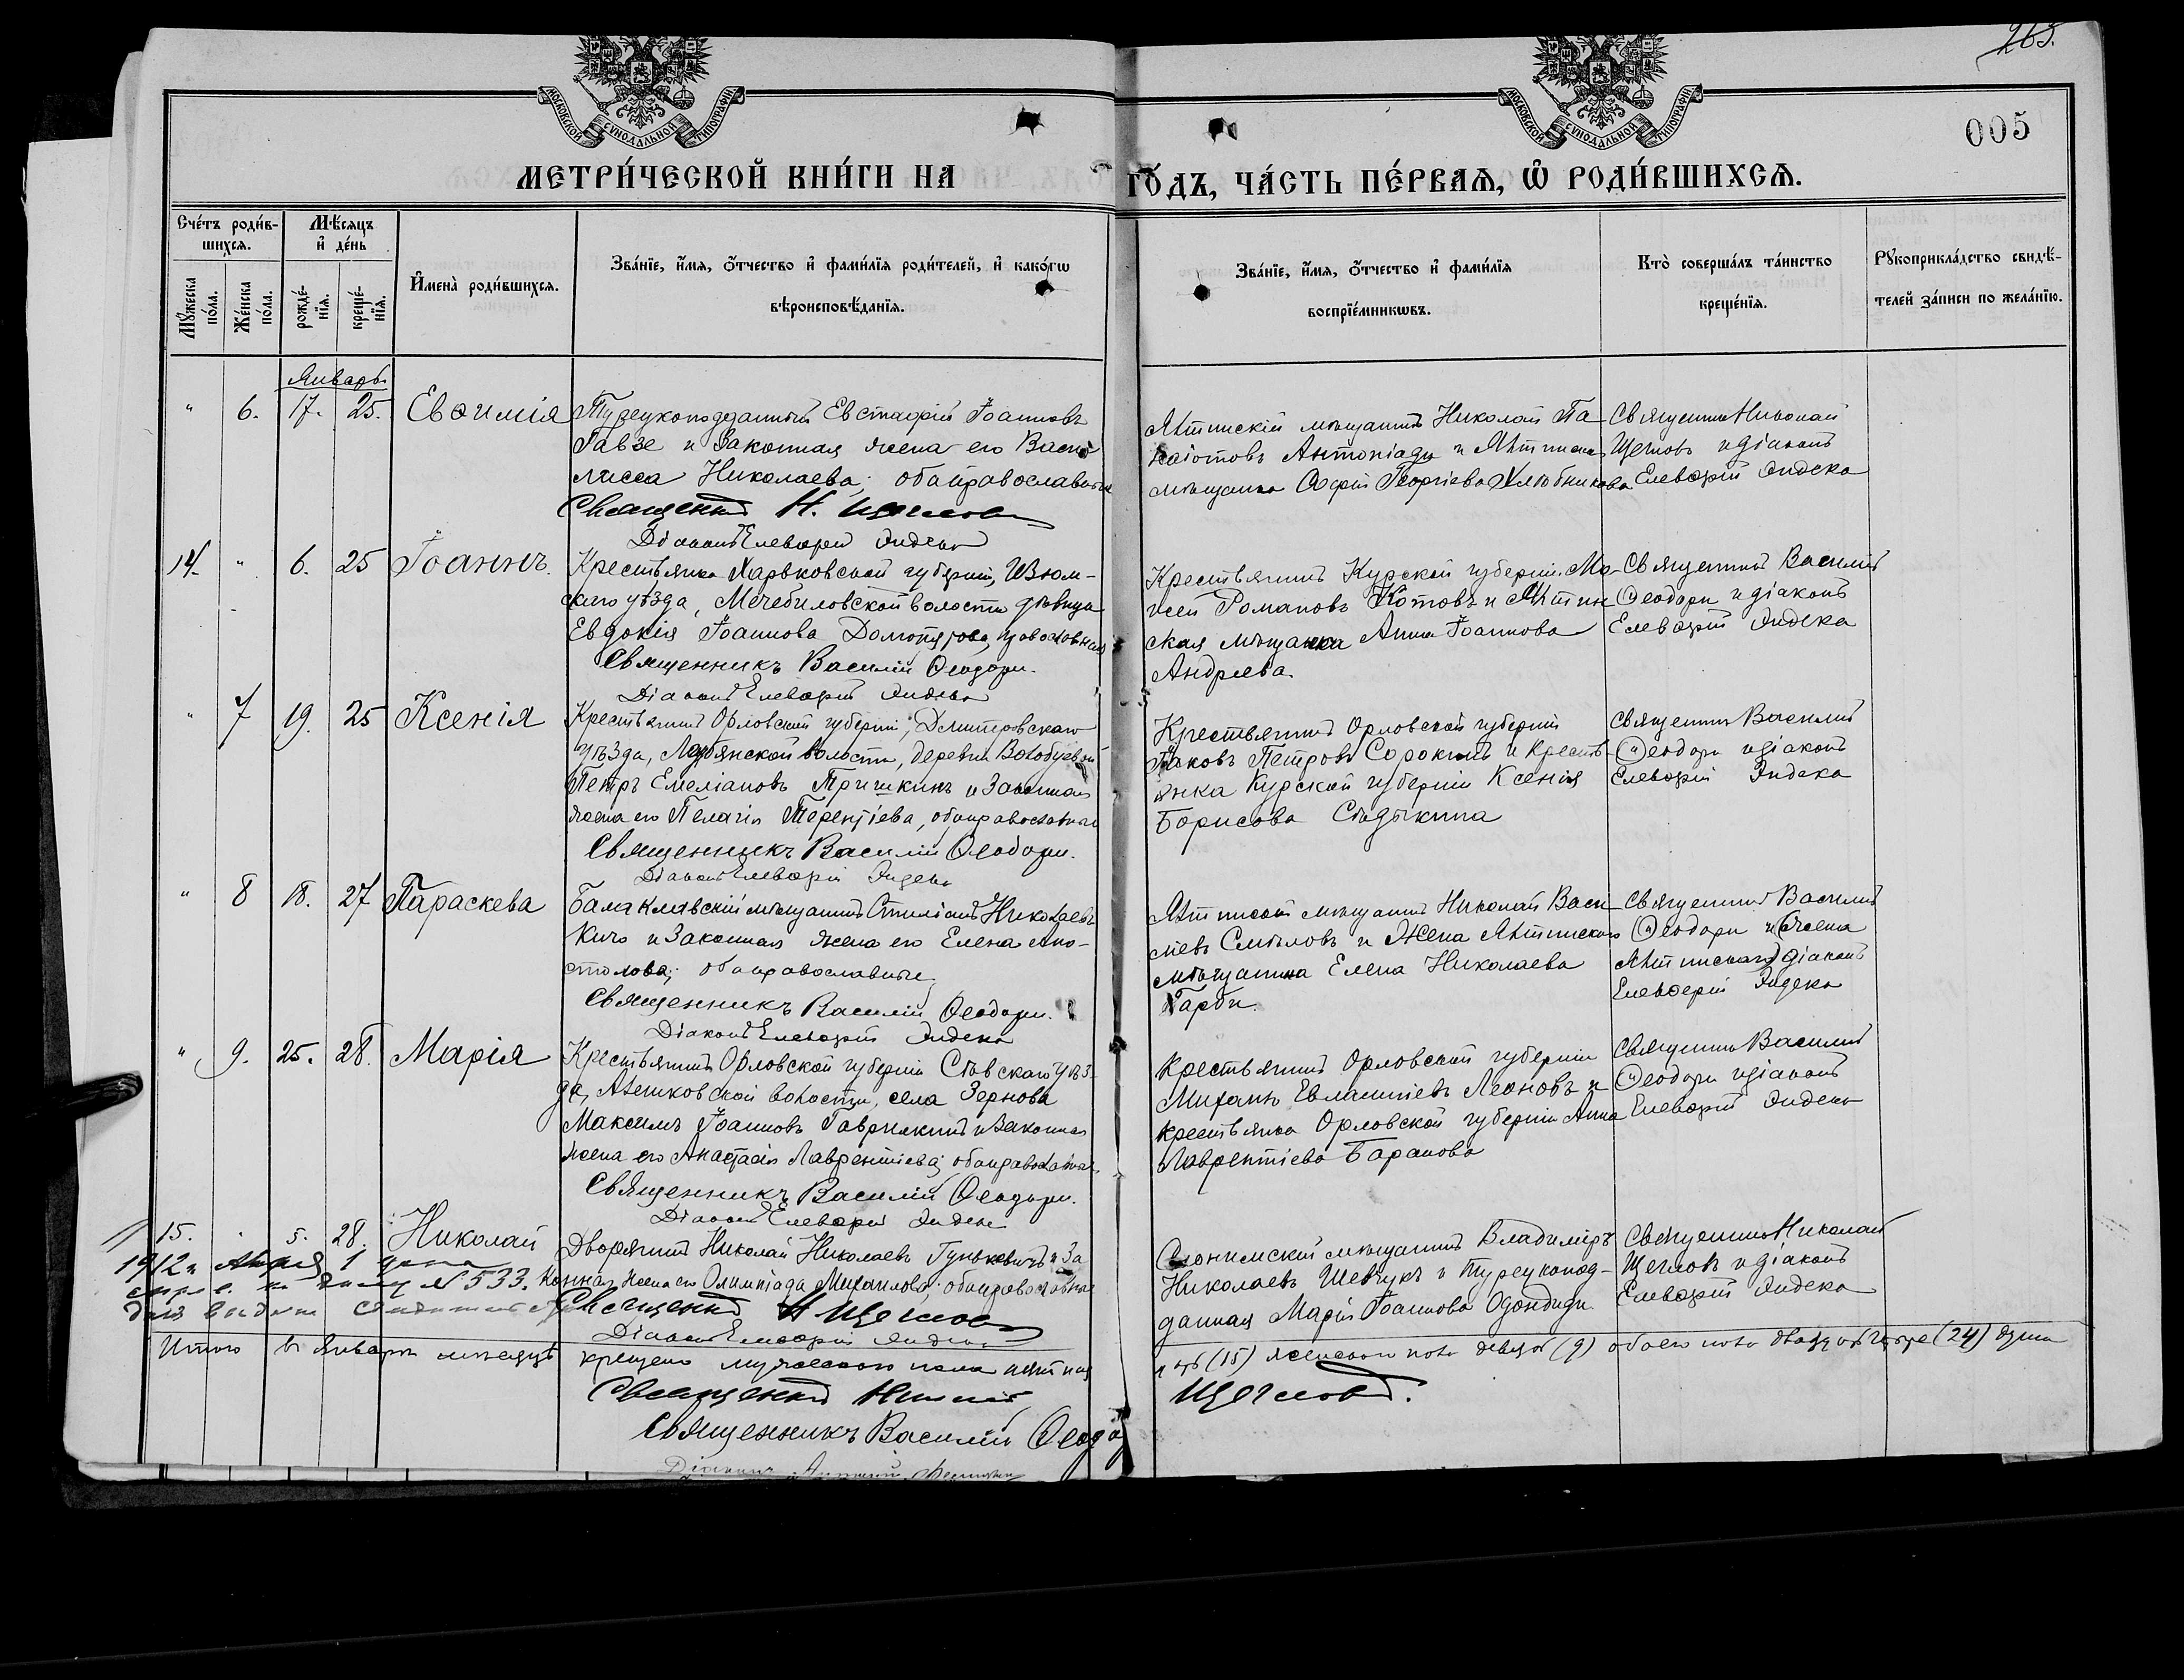 265.
005
МОСКОВСКОЙ СУНОДАЛЬНОЙ ТИПОГРАФІИ
МОСКОВСКОЙ СУНОДАЛЬНОЙ ТИПОГРАФІИ
МЕТРИ́ЧЕСКОЙ КНИ́ГИ НА ГО́ДЪ, ЧА́СТЬ ПЕ́РВАѦ, Ѡ РОДИ́ВШИХСѦ.
Сче́тъ роди́в-
шихсѧ.
Мꙋ́жеска
по́ла.
Же́нска
по́ла.
Мѣ́сѧцъ
и҆ де́нь
рожде́-
нїѧ.
креще́-
нїѧ.
И҆мена̀ роди́вшихсѧ.
Зва́нїе, и҆́мѧ, ѻ҆́тчество и҆ фами́лїѧ роди́телей, и҆ како́гѡ
вѣроисповѣ́данїѧ.
Зва́нїе, и҆́мѧ, ѻ҆́тчество и҆ фами́лїѧ
воспрїе́мникѡвъ.
Кто̀ соверша́лъ та́инство
креще́нїѧ.
Рꙋкоприкла́дство свидѣ́-
телей за́писи по жела́нїю.
Январь
" 6. 17. 25. Евѳимія
Турецкоподданный Евстафій Іоанновъ
Гавзе и законная жена его Васи
лисса Николаева; оба православные
Священникъ Н. Щегловъ
Діаконъ Елевѳерій Эндека
Ялтинскій мѣщанинъ Николай Па
наіотовъ Антоніади и Ялтинская
мѣщанка Софія Георгіева Хлюбникова
Священникъ Николай
Щегловъ и діаконъ
Елевѳерій Эндека
14. " 6. 25 Іоаннъ.
Крестьянка Харьковской губерніи, Изюм-
скаго уѣзда, Мечебиловской волости дѣвица
Евдокія Іоаннова, православная
Священникъ Василій Ѳеодори.
Діаконъ Елевѳерій Эндека
Крестьянинъ Курской губерніи Мо
исей Романовъ Котовъ и Ялтин
ская мѣщанка Анна Іоаннова
Андреева.
Священникъ Василій
Ѳеодори и діаконъ
Елевѳерій Эндека
" 7 19. 25 Ксенія
Крестьянинъ Орловской губерніи, Дмитровскаго
уѣзда, волости, деревни
Петръ Емеліановъ Тришкинъ и законная
жена его Пелагія Терентіева, оба православные
Священникъ Василій Ѳеодори.
Діаконъ Елевѳерій Эндека
Крестьянинъ Орловской губерніи
Іаковъ Петровъ Сорокинъ и кресть
янка Курской губерніи Ксенія
Борисова Сѣдыкина
Священникъ Василій
Ѳеодори и діаконъ
Елевѳерій Эндека
" 8 18. 27 Параскева
Балаклавскій мѣщанинъ Стиліанъ Николаевъ
Кичо и законная жена его Елена Апо-
столова; оба православные
Священникъ Василій Ѳеодори.
Діаконъ Елевѳерій Эндека
Ялтинскій мѣщанинъ Николай Васи
ліевъ Смѣловъ и Жена Ялтинскаго
мѣщанина Елена Николаева
Гарби.
Священникъ Василій
Ѳеодори и
діаконъ
Елевѳерій Эндека
" 9. 25. 28. Марія
Крестьянинъ Орловской губерніи Сѣвскаго уѣз
да, волости, села Зернова
Максимъ Іоанновъ Гаврюкинъ и законная
жена его Анастасія Лаврентіева; оба православные.
Священникъ Василій Ѳеодори.
Діаконъ Елевѳерій Эндека
Крестьянинъ Орловской губерніи
Михаилъ Евлампіевъ Леоновъ и
крестьянка Орловской губерніи Анна
Лаврентіева Баранова
Священникъ Василій
Ѳеодори и діаконъ
Елевѳерій Эндека
15. " 5. 28. Николай
Дворянинъ Николай Николаевъ Гунькевичъ и за
конная жена его Олимпіада Михаилова; оба православные
Священникъ Н Щегловъ
Діаконъ Елевѳерій Эндека
Слонимскій мѣщанинъ Владиміръ
Николаевъ Шевчукъ и турецкопод-
данная Марія Іоаннова
Священникъ Николай
Щегловъ и діаконъ
Елевѳерій Эндека
1912 г. Апрѣля 1 дня
№ 533.
Итого въ Январѣ мѣсяцѣ крещено мужескаго пола пятнад
цать (15) женскаго пола девять (9) обоего пола двадцать четыре (24) души
Священникъ Николай Щегловъ.
Священникъ Василій Ѳеодо
Діаконъ